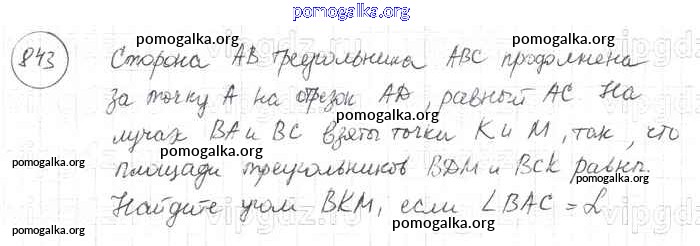 pomogalka.org
843 Сторона AB треугольника ABC продолжена
pomogalka.org pomogalka.org
за точку A на отрезок AD, равный AC. На
pomogalka.org
лучах BA и BC взяты точки K и M, так, что
pomogalka.org pomogalka.org
площади треугольников BDM и BCK равны.
pomogalka.org
Найдите угол BKM, если ∠BAC = α
pomogalka.org pomogalka.org